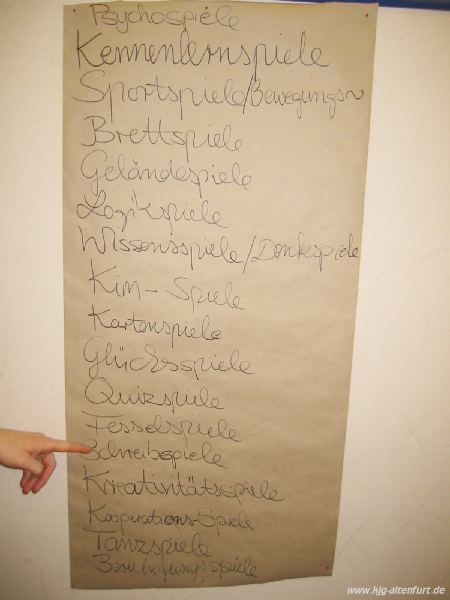 Psychospiele
Kennenlernspiele
Sportspiele/Bewegungs~
Brettspiele
Geländespiele
Logikspiele
Wissensspiele/Denkespiele
Kim-Spiele
Kartenspiele
Glücksspiele
Quizspiele
Fesselspiele
Schreibspiele
Kreativitätsspiele
Kooperations-Spiele
Tanzspiele
Beruhigungsspiele
www.kjg-altenfurt.de